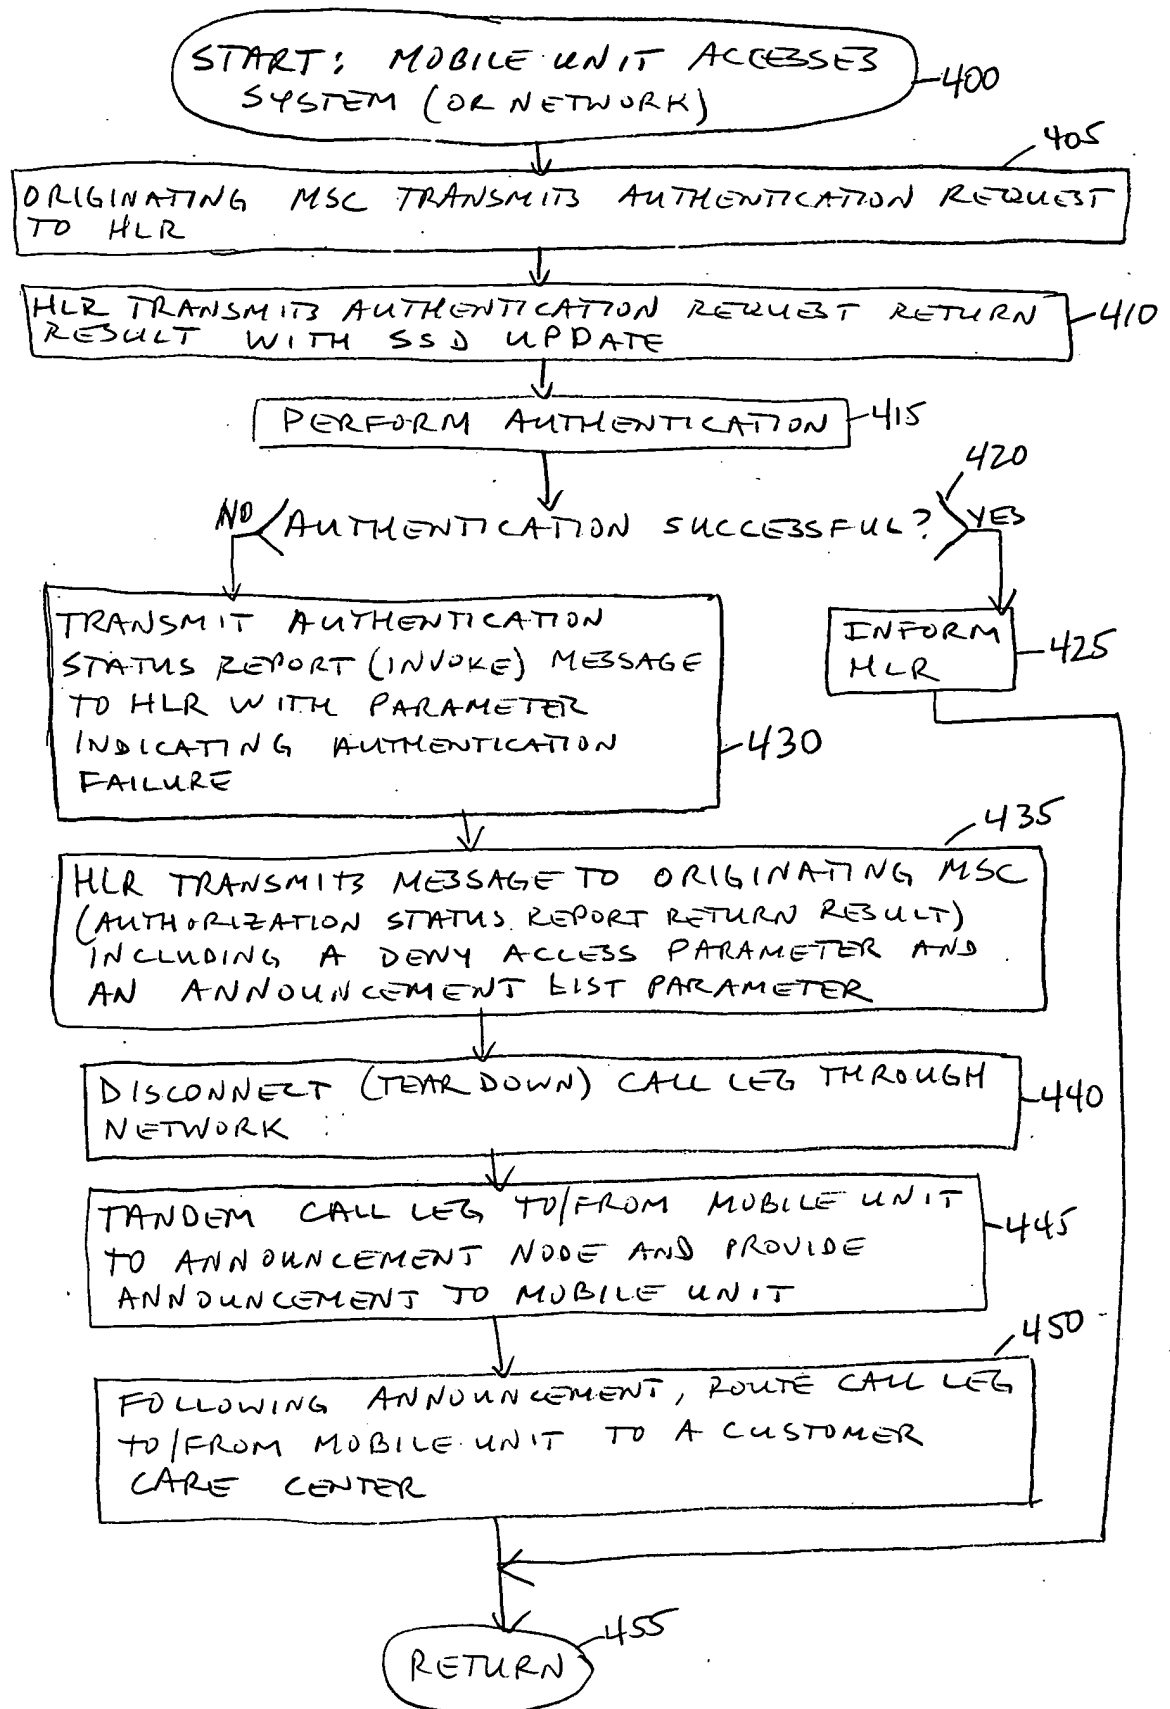 START: MOBILE UNIT ACCESSES
SYSTEM (OR NETWORK)
400
405
ORIGINATING MSC TRANSMITS AUTHENTICATION REQUEST
TO HLR
HLR TRANSMITS AUTHENTICATION REQUEST RETURN
RESULT WITH SSD UPDATE
410
PERFORM AUTHENTICATION
415
420
NO
AUTHENTICATION SUCCESSFUL?
YES
TRANSMIT AUTHENTICATION
STATUS REPORT (INVOKE) MESSAGE
TO HLR WITH PARAMETER
INDICATING AUTHENTICATION
FAILURE
430
INFORM
HLR
425
435
HLR TRANSMITS MESSAGE TO ORIGINATING MSC
(AUTHORIZATION STATUS REPORT RETURN RESULT)
INCLUDING A DENY ACCESS PARAMETER AND
AN ANNOUNCEMENT LIST PARAMETER
DISCONNECT (TEAR DOWN) CALL LEG THROUGH
NETWORK
440
TANDEM CALL LEG TO/FROM MOBILE UNIT
TO ANNOUNCEMENT NODE AND PROVIDE
ANNOUNCEMENT TO MOBILE UNIT
445
450
FOLLOWING ANNOUNCEMENT, ROUTE CALL LEG
TO/FROM MOBILE UNIT TO A CUSTOMER
CARE CENTER
455
RETURN